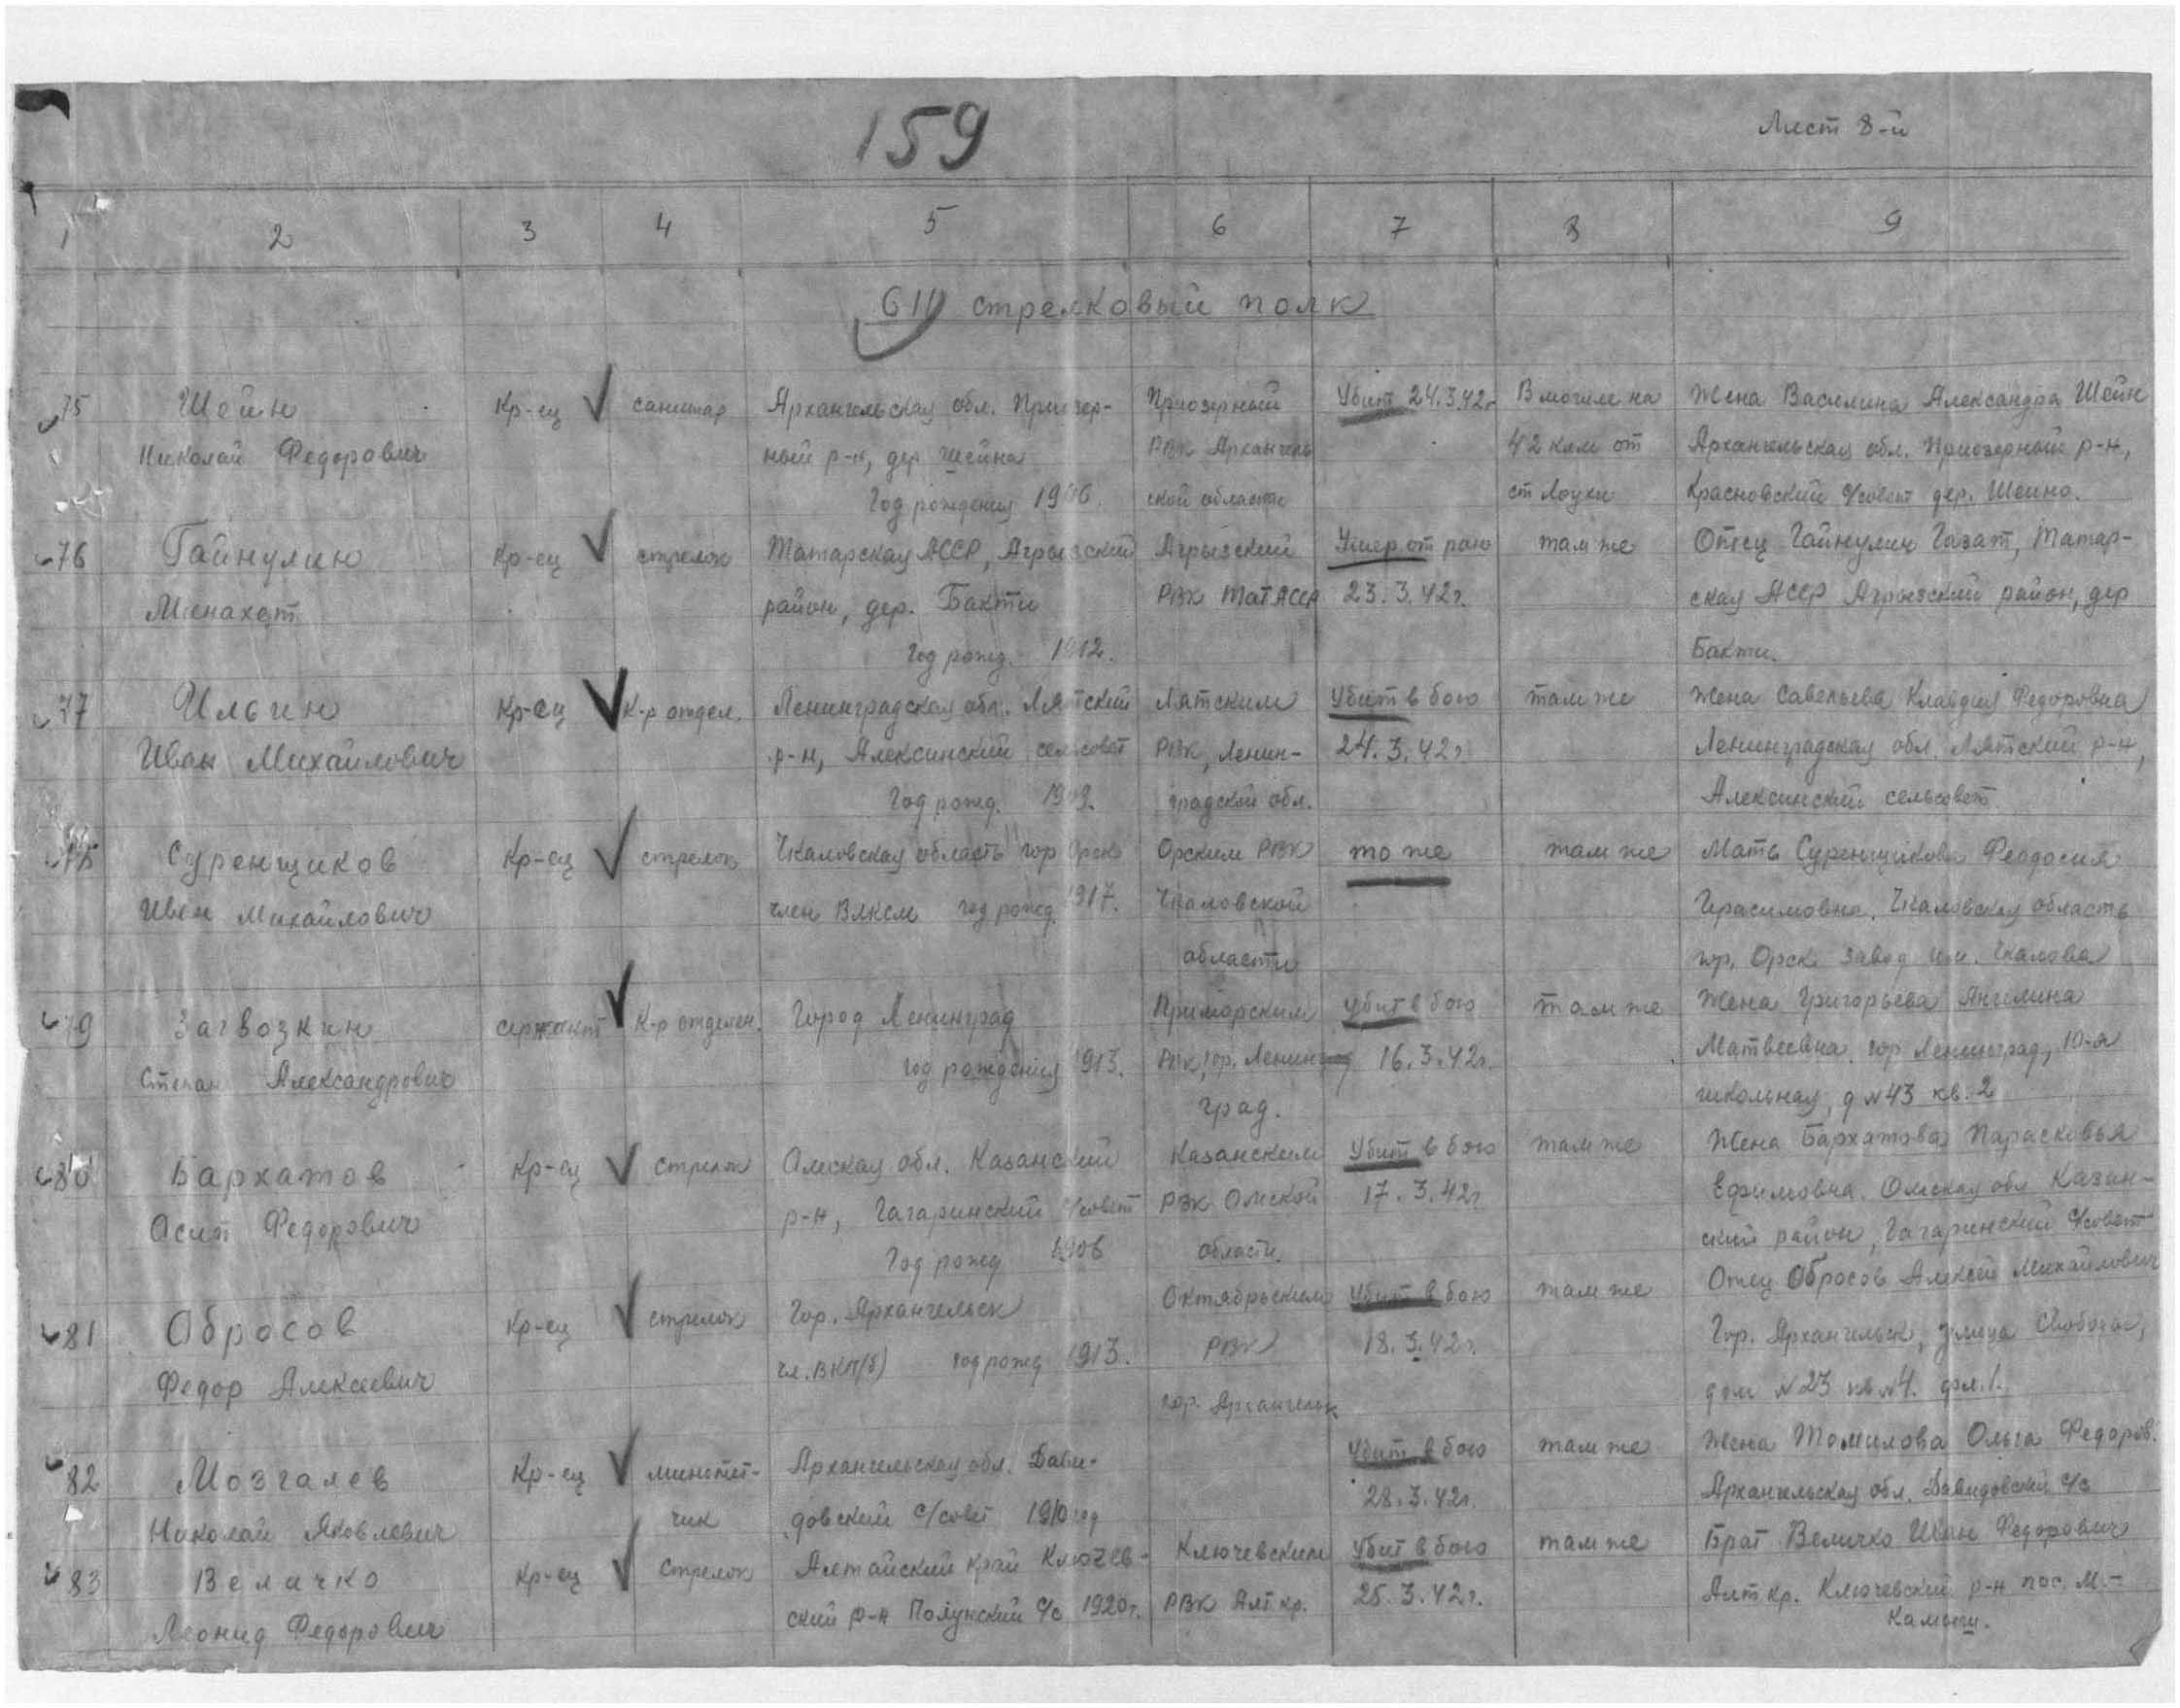 159
Лист 8-й
1 2 3 4 5 6 7 8 9
611 стрелковый полк
75 Шейн Кр-ец санитар Архангельская обл. Приозер- Приозерный Убит 24.3.42г В могиле на Жена Василина Александра Шейн
Николай Федорович ный р-н, дер Шейна РВК Архангель 42 клм от Архангельская обл. Приозерный р-н,
Год рождения 1906. ской области ст Лоухи Красновский с/совет дер. Шеино.
76 Гайнулин Кр-ец стрелок Татарская АССР, Агрызский Агрызский Умер от ран там же Отец Гайнулин Газат, Татар-
Менахат район, дер. Бакти РВК ТатАССР 23.3.42г. ская АССР Агрызский район, дер
Год рожд. 1912. Бакти.
77 Ильин Кр-ец К-р отдел. Ленинградская обл. Лятский Лятским Убит в бою там же Жена Савельева Клавдия Федоровна
Иван Михайлович р-н, Алексинский сельсовет РВК, Ленин- 24.3.42г Ленинградская обл. Лятский р-н,
Год рожд. 1909. градской обл. Алексинский сельсовет.
78 Суренщиков Кр-ец стрелок Чкаловская область гор Орск Орским РВК то же там же Мать Суренщикова Феодосия
Иван Михайлович член ВЛКСМ год рожд. 1917. Чкаловской Герасимовна, Чкаловская область
области гор. Орск завод им. Чкалова
79 Загвозкин сержант К-р отделен. Город Ленинград Приморским Убит в бою там же Жена Григорьева Ангелина
Степан Александрович год рождения 1913. РВК, гор. Ленин 16.3.42г. Матвеевна. гор Ленинград, 10-я
град. школьная, д №43 кв. 2
80 Бархатов Кр-ец стрелок Омская обл. Казанский Казанским Убит в бою там же Жена Бархатова Парасковья
Осип Федорович р-н, Гагаринский с/совет РВК Омской 17.3.42г. Ефимовна. Омская обл Казан-
Год рожд 1906 области. ский район, Гагаринский с/совет
81 Обросов Кр-ец стрелок Гор. Архангельск Октябрьским Убит в бою там же Отец Обросов Алексей Михайлович
Федор Алексеевич чл. ВКП(б) год рожд 1913. РВК 18.3.42г. Гор. Архангельск, улица Свободы,
гор. Архангельск дом №23 кв №4. фл. 1.
82 Мозгалев Кр-ец миномет- Архангельская обл. Дави- Убит в бою там же Жена Томилова Ольга Федоров.
Николай Яковлевич чик довский с/совет 1910 год 28.3.42г. Архангельская обл. Давидовский с/с
83 Величко Кр-ец Стрелок Алтайский край Ключев- Ключевским Убит в бою там же Брат Величко Иван Федорович
Леонид Федорович ский р-н Полунский с/с 1920г. РВК Алт кр. 28.3.42г. Алт кр. Ключевский р-н пос. М.-
Камыш.